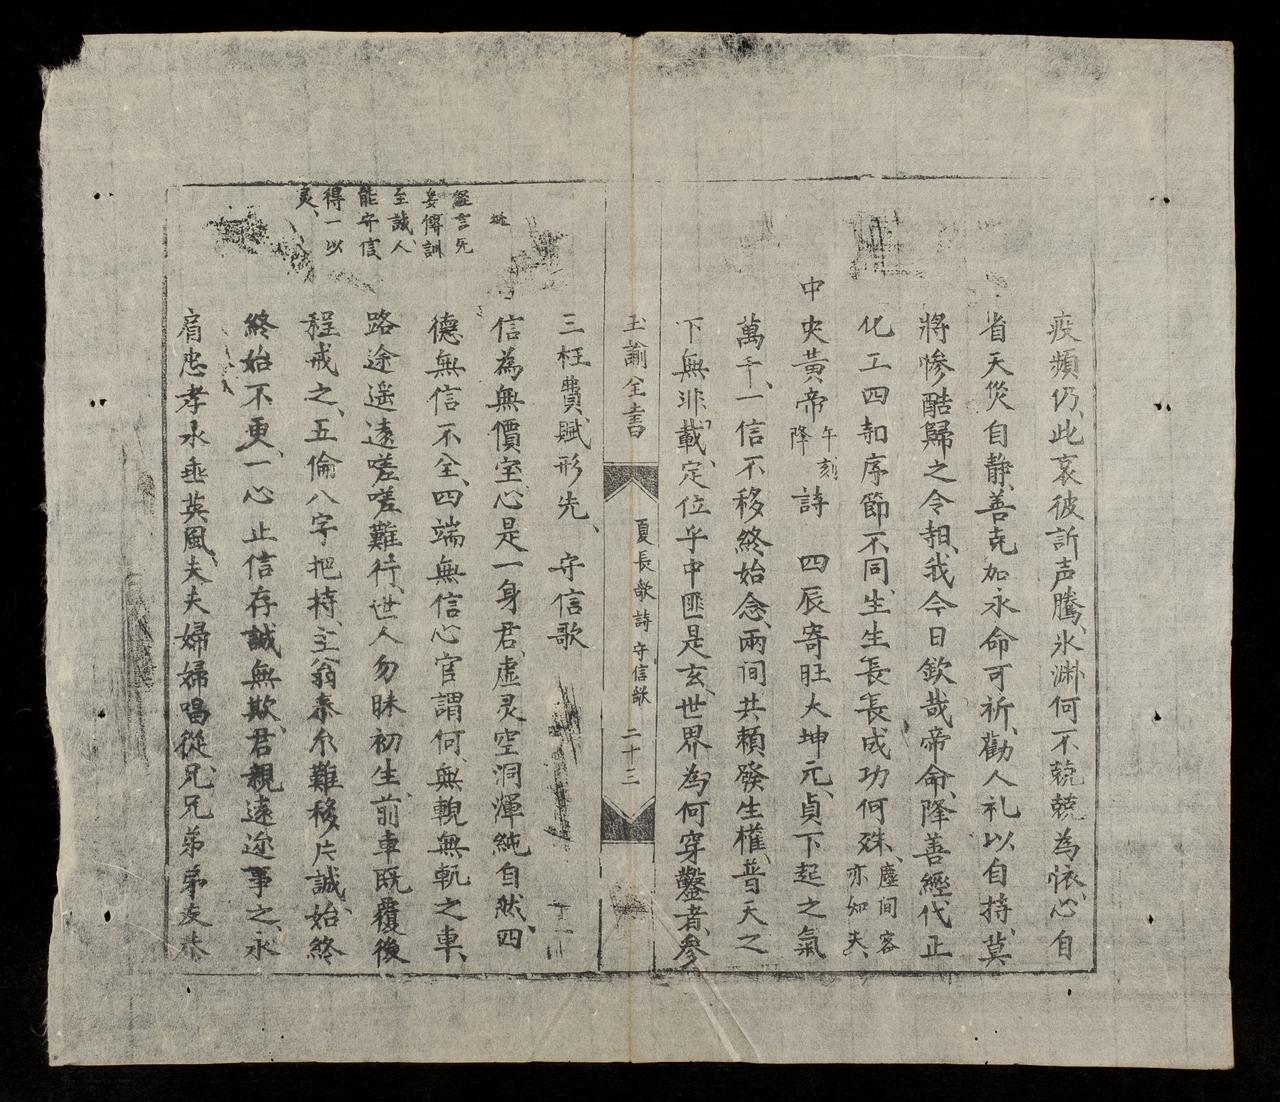 疫頻仍、此哀彼訴声騰、氷淵何不兢兢為懐、心自
省天災自静、善克加永命可祈、勸人礼以自持、莫
將惨酷歸之令相、我今日欽哉帝命、降善經代正
化工四知序節不同、生生長長成功何殊、塵間容亦知夫
中央黃帝午刻降詩　四辰寄旺大坤元、貞下起之氣
萬千、一信不移終始念、兩间共賴發生權、普天之
下無非載、定位乎中匪是玄、世界為何穿鑿者、參
玉諭全書
夏長歌詩守信歌
二十三
三枉費賦形先、　守信歌
信為無價室、心是一身君、虚灵空洞渾純自然、四
德無信不全、四端無信心官謂何、無輗無軏之車、
路途遥遠嗟嗟難行、世人勿昧初生、前車既覆後
程戒之、五倫八字把持、主翁泰尒難移、片誠、始終
終始不更、一心止信存誠無欺、君親遠迩事之、永
肩忠孝永垂英風、夫夫婦婦唱從、兄兄弟弟友恭
經言先
妄傳訓
至誠人、
能守信
得一以
灵、